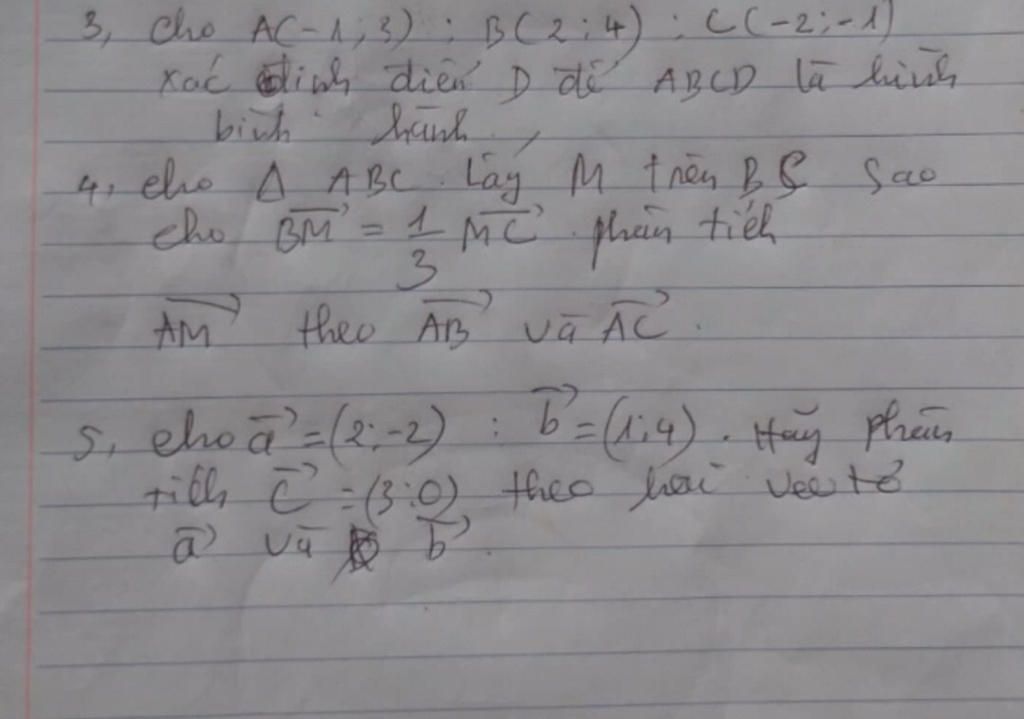 3, Cho A(-1;3) ; B(2;4) ; C(-2;-1)
Xác định điểm D để ABCD là hình
bình hành.
4, cho Δ ABC. Lấy M trên BC sao
cho \overrightarrow{BM} = \frac{1}{3} \overrightarrow{MC}. phân tích
\overrightarrow{AM} theo \overrightarrow{AB} và \overrightarrow{AC}.
5, cho \overrightarrow{a} = (2;-2) ; \overrightarrow{b} = (1;4). Hãy phân
tích \overrightarrow{c} = (3;0) theo hai vectơ
\overrightarrow{a} và \overrightarrow{b}.